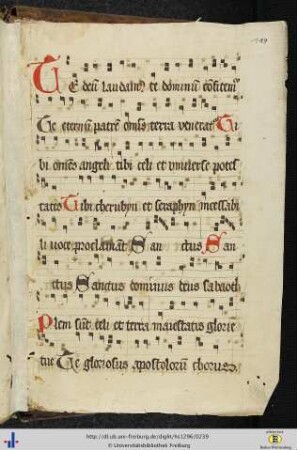 Te deu laudam te dominu cofitem
Te eternu patre omis terra venerat Ti
bi omes angeli tibi celi et universe potes
tates Tibi cherubyn et seraphyn incessabi
li voce proclamat San ctus San
ctus Sanctus dominus deus sabaoth
Pleni sut celi et terra maiestatis glorie
tue Te gloriosus apostolorum chorus
http://dl.ub.uni-freiburg.de/diglit/hs1296/0239
© Universitätsbibliothek Freiburg